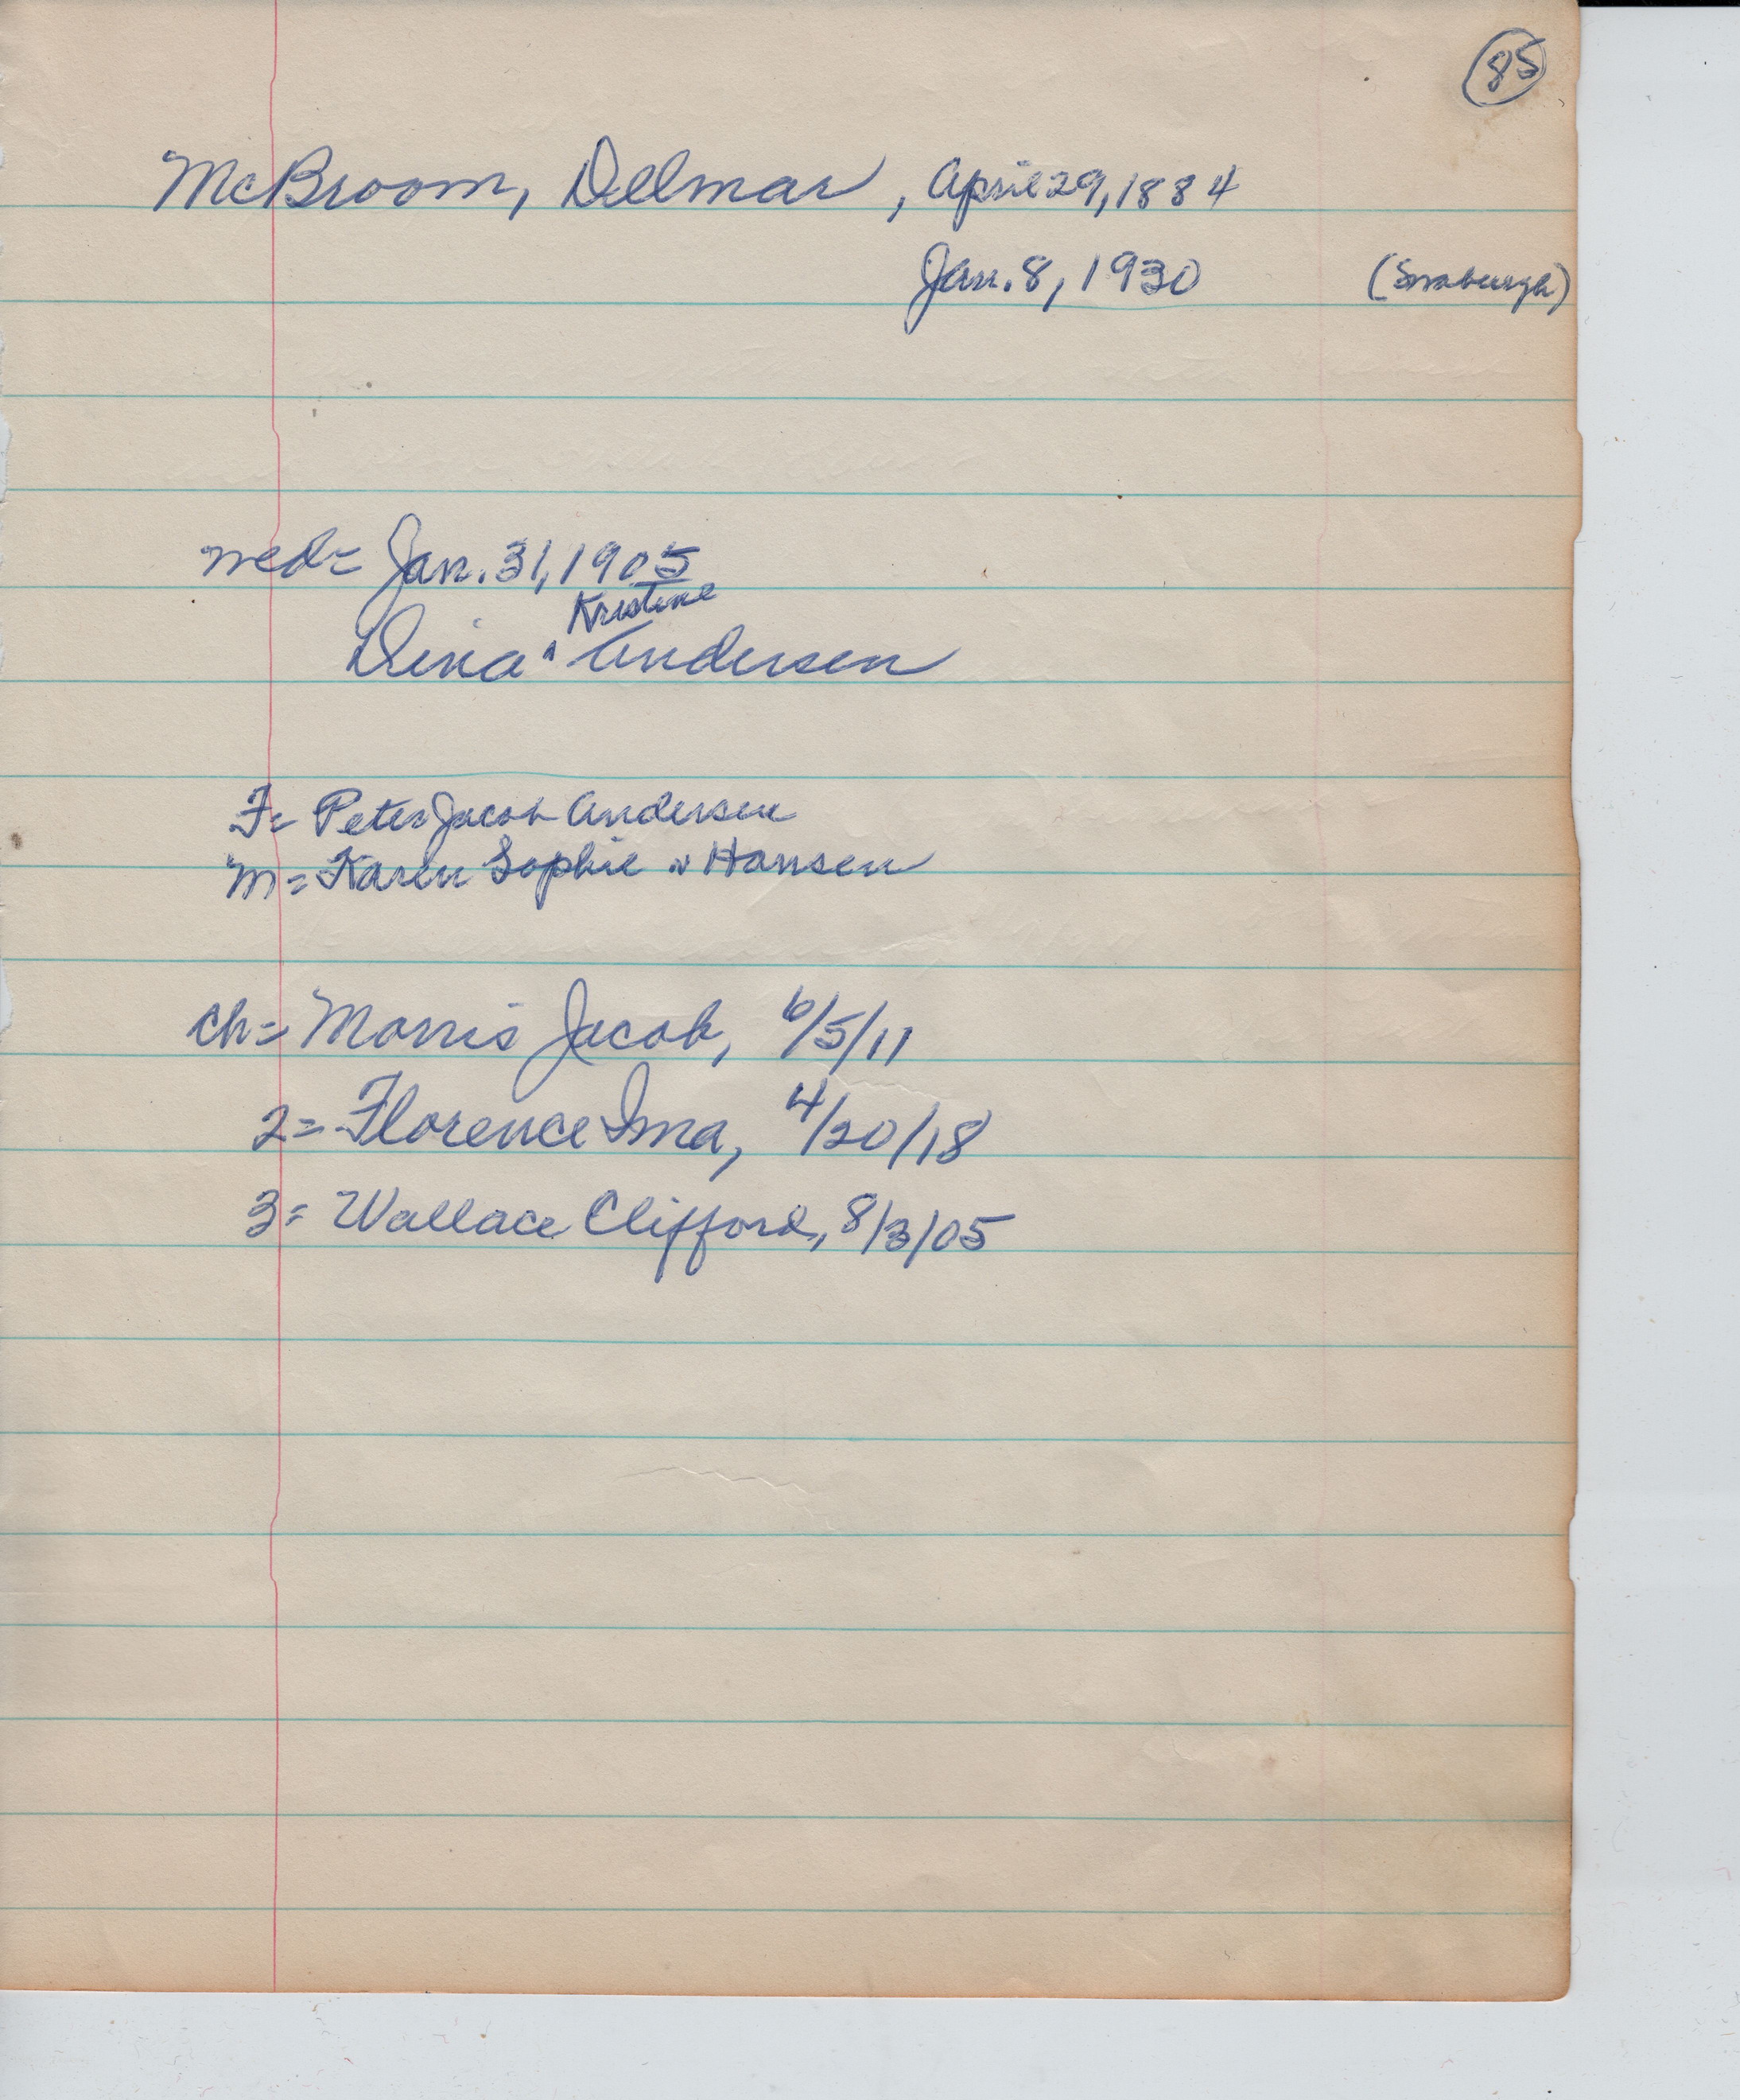 85
McBroom, Delmar, April 29, 1884
Jan. 8, 1930
wed= Jan. 31, 1905
Kristine
Dina ^ Andersen
F= Peter Jacob Andersen
M= Karen Sophie Hansen
Ch= Morris Jacob, 6/5/11
2= Florence Ima, 4/20/18
3= Wallace Clifford, 8/3/05